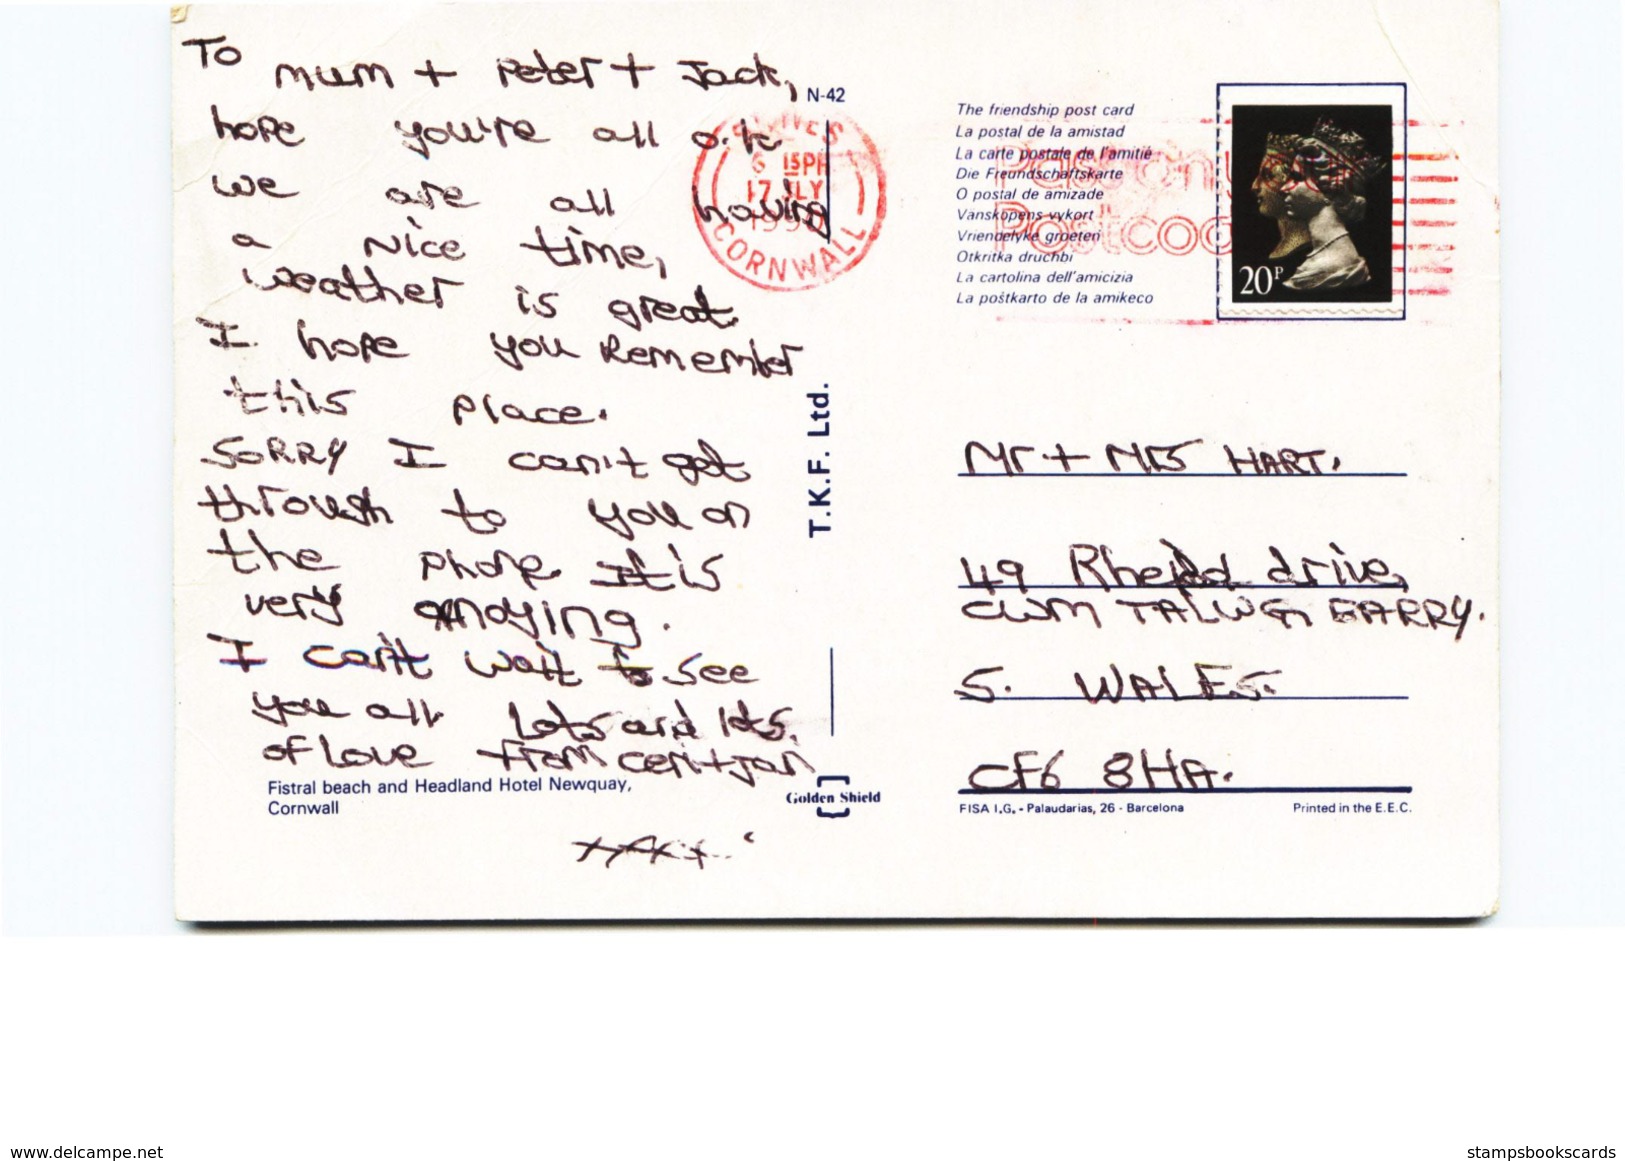 To mum + Peter + Jack,
hope you're all o.k
we are all having
a Nice time,
weather is great
I hope you Remember
this place.
SORRY I can't get
through to you on
the phone It is
very annoying.
I can't wait to see
you all. Lots and lots
of Love from Ceri + Jan
Fistral beach and Headland Hotel Newquay,
Cornwall
N-42
T.K.F. Ltd.
Golden Shield
6 15PM
17 JLY
1990
CORNWALL
The friendship post card
La postal de la amistad
La carte postale de l'amitié
Die Freundschaftskarte
O postal de amizade
Vanskopens vykort
Vriendelyke groeten
Otkritka druchbi
La cartolina dell'amicizia
La poŝtkarto de la amikeco
Pass on your
Postcode
20P
Mr + Mrs HART.
49 Rheidol drive,
CWM TALWG BARRY.
S. WALES.
CF6 8HA.
FISA I.G. - Palaudarias, 26 - Barcelona
Printed in the E.E.C.
www.delcampe.net
stampsbookscards